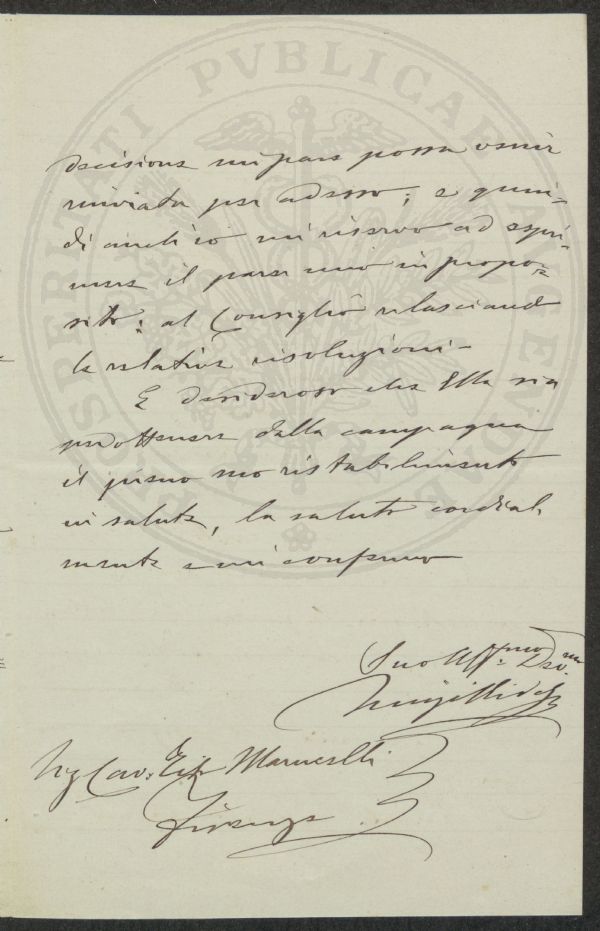 PROSPERITATI PVBLICAE AVGENDAE
decisione mi pare possa venir
rinviata per adesso; e quin-
di anch'io mi riservo ad espri-
mere il parer mio in propo-
sito; al Consiglio rilasciando
le relative risoluzioni -
E desideroso che Ella sia
per ottenere dalla campagna
il pieno suo ristabilimento
in salute, la saluto cordial
mente e mi confermo
Suo Aff.mo Dev.mo
Ing Cav. Marucelli
Firenze